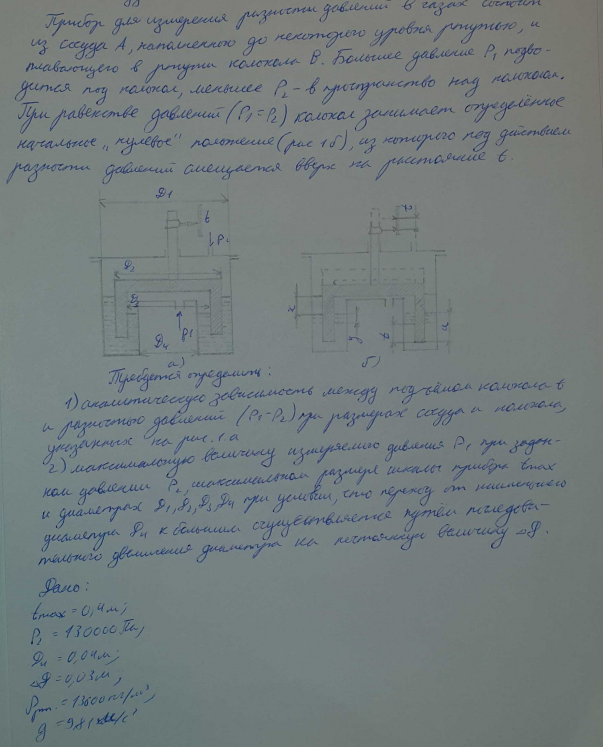 Прибор для измерения разности давлений в газах состоит
из сосуда А, наполненного до некоторого уровня ртутью, и
плавающего в ртути колокола В. Большее давление P₁ подво-
дится под колокол, меньшее P₂ - в пространство над колоколом.
При равенстве давлений (P₁=P₂) колокол занимает определённое
начальное „нулевое" положение (рис 1б), из которого под действием
разности давлений смещается вверх на расстояние t.
D₁
t
P₂
D₂
D₃
P₁
D₄
а)
б)
Требуется определить:
1) аналитическую зависимость между подъёмом колокола t
и разностью давлений (P₁-P₂) при размерах сосуда и колокола,
указанных на рис. 1.а
2) максимальную величину измеряемого давления P₁ при задан-
ном давлении P₂, максимальном размере шкалы прибора tmax
и диаметрах D₁, D₂, D₃, D₄ при условии, что переход от наименьшего
диаметра D₄ к большим осуществляется путём последова-
тельного увеличения диаметра на постоянную величину ΔD.
Дано:
tmax = 0,4 м;
P₂ = 130000 Па,
D₄ = 0,04 м;
ΔD = 0,03 м,
ρрт. = 13600 кг/м³,
g = 9,81 м/с²